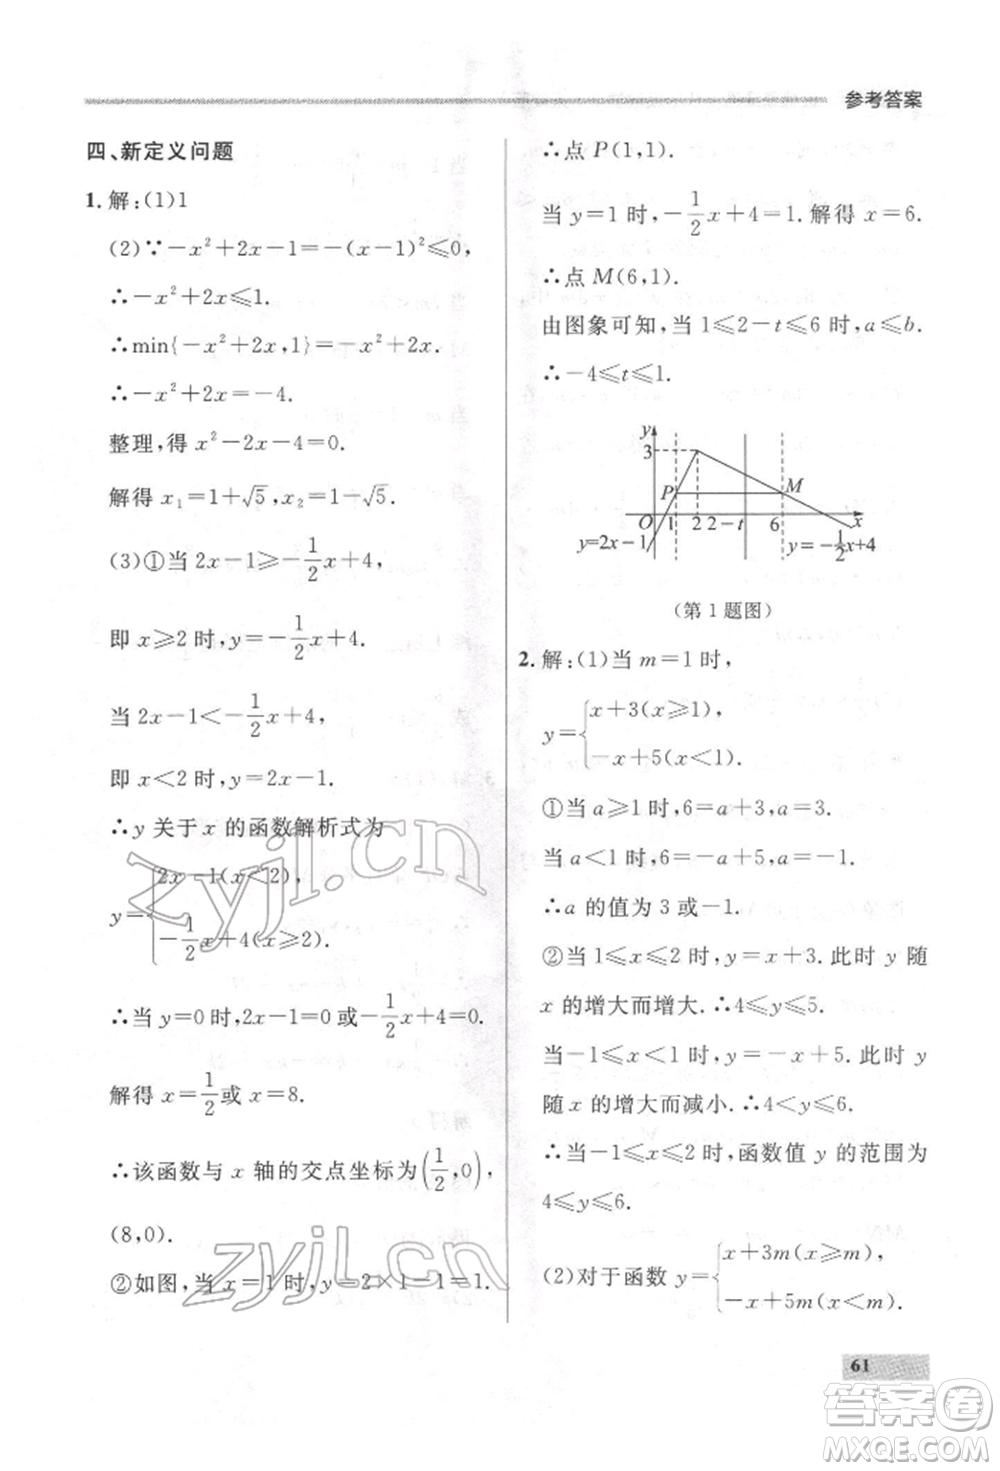 参考答案
四、新定义问题
1. 解:(1)1
(2)∵-x²+2x-1=-(x-1)²≤0,
∴-x²+2x≤1.
∴min{-x²+2x,1}=-x²+2x.
∴-x²+2x=-4.
整理,得 x²-2x-4=0.
解得 x₁=1+√5,x₂=1-√5.
(3)①当 2x-1≥-1/2x+4,
即 x≥2 时,y=-1/2x+4.
当 2x-1<-1/2x+4,
即 x<2 时,y=2x-1.
∴y 关于 x 的函数解析式为
y={2x-1(x<2),
-1/2x+4(x≥2).
∴当 y=0 时,2x-1=0 或-1/2x+4=0.
解得 x=1/2或 x=8.
∴该函数与 x 轴的交点坐标为(1/2,0),
(8,0).
②如图,当 x=1 时,y=2×1-1=1.
∴点 P(1,1).
当 y=1 时,-1/2x+4=1. 解得 x=6.
∴点 M(6,1).
由图象可知,当 1≤2-t≤6 时,a≤b.
∴-4≤t≤1.
y
3
P
M
O 1 2 2-t 6 x
y=2x-1
y=-1/2x+4
(第 1 题图)
2. 解:(1)当 m=1 时,
y={x+3(x≥1),
-x+5(x<1).
①当 a≥1 时,6=a+3,a=3.
当 a<1 时,6=-a+5,a=-1.
∴a 的值为 3 或-1.
②当 1≤x≤2 时,y=x+3. 此时 y 随
x 的增大而增大. ∴4≤y≤5.
当-1≤x<1 时,y=-x+5. 此时 y
随 x 的增大而减小. ∴4<y≤6.
∴当-1≤x≤2 时,函数值 y 的范围为
4≤y≤6.
(2)对于函数 y={x+3m(x≥m),
-x+5m(x<m).
61
zyjl.cn
zyjl.cn
答案圈
MXQE.COM